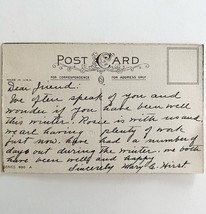 POST CARD
MADE IN U.S.A.
FOR CORRESPONDENCE FOR ADDRESS ONLY
Dear Friend
We often speak of you and
wonder if you have been well
this winter. is with us and
we are having plenty of work
just now. have had a number of
days out during the winter. we both
have been well and happy
Sincerely Mary E. Hirst
SERIES